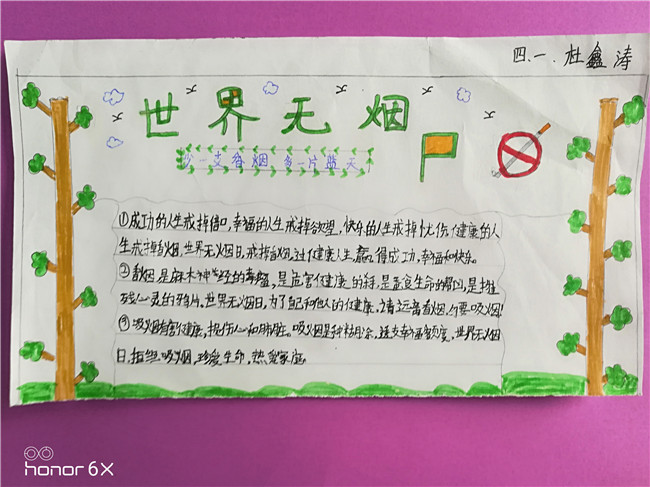 四.一.杜鑫涛
世界无烟
少一支香烟,多一片蓝天
①成功的人生戒掉借口,幸福的人生戒掉贪欲望,快乐的人生戒掉忧伤,健康的人
生戒掉香烟,世界无烟日,戒掉香烟,过健康人生,赢得成功,幸福和快乐。
②香烟是麻木神经的毒瘤,是危害健康的,是吞食生命的,是摧
残心灵的鸦片。世界无烟日,为了自己和他人的健康,请远离香烟,不要吸烟!
③吸烟有害健康,损伤心和肺脏。吸烟是种,透支幸福,世界无烟
日,拒绝吸烟,珍爱生命,热爱家庭
honor 6X